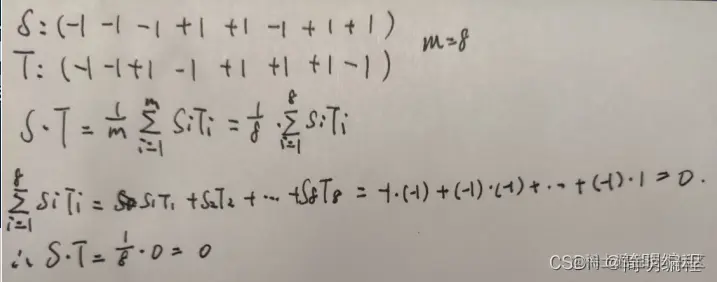 S: (-1 -1 -1 +1 +1 -1 +1 +1) m=8
T: (-1 -1 +1 -1 +1 +1 +1 -1)
S·T = 1/m ∑_{i=1}^{m} SiTi = 1/8 · ∑_{i=1}^{8} SiTi
∑_{i=1}^{8} SiTi = S1T1 + S2T2 + ··· + S8T8 = -1·(-1) + (-1)·(-1) + ·· + (-1)·1 = 0.
∴ S·T = 1/8 · 0 = 0
CSDN @简明编程